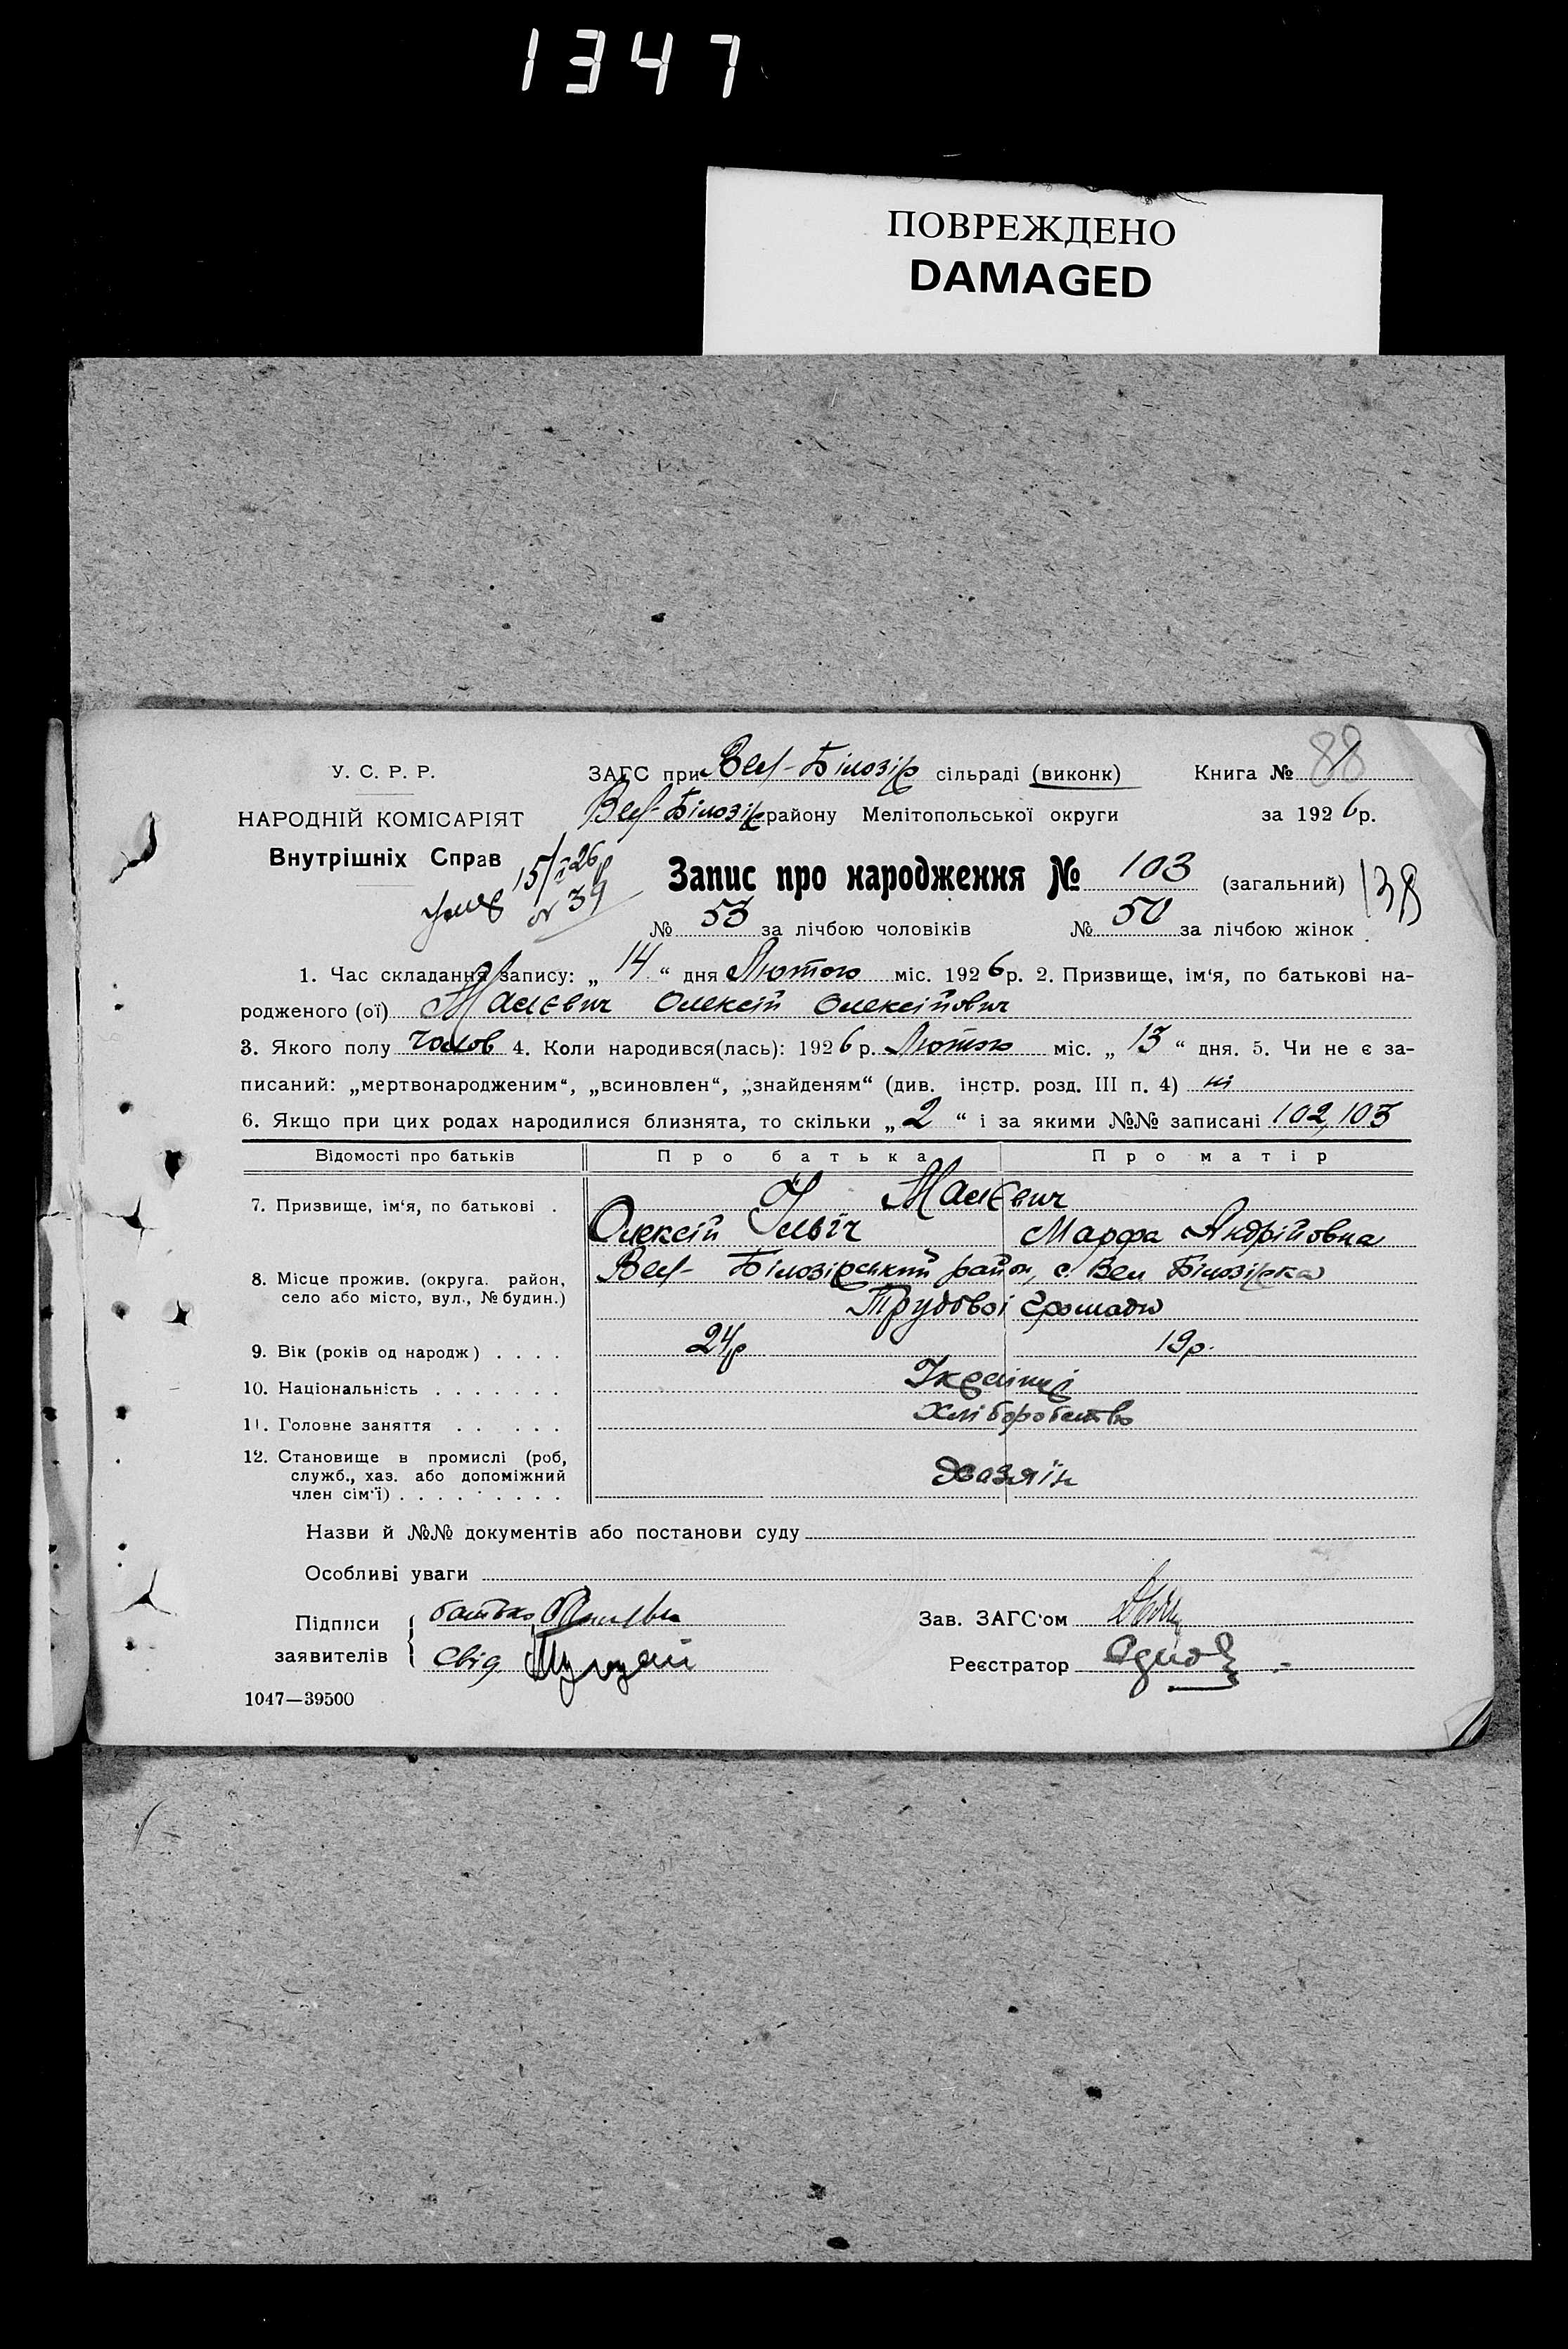 1347
ПОВРЕЖДЕНО
DAMAGED
У. С. Р. Р.
НАРОДНІЙ КОМІСАРІЯТ
Внутрішніх Справ
ЗАГС при Вел-Білозір сільраді (виконк) Книга № 1
88
Вел-Білозір району Мелітопольської округи за 1926 р.
15/ 26р
№ 39
Запис про народження № 103 (загальний) 138
№ 53 за лічбою чоловіків № 50 за лічбою жінок
1. Час складання запису: „ 14 “ дня Лютого міс. 1926 р. 2. Призвище, ім‘я, по батькові на-
родженого (ої) Малєвич Олексій Олексійович
3. Якого полу Чолов 4. Коли народився(лась): 1926 р. Лютого міс. „ 13 “ дня. 5. Чи не є за-
писаний: „мертвонародженим“, „всиновлен“, „знайденям“ (див. інстр. розд. III п. 4) ні
6. Якщо при цих родах народилися близнята, то скільки „ 2 “ і за якими №№ записані 102, 103
Відомості про батьків Про батька Про матір
7. Призвище, ім‘я, по батькові . Малєвич
Олексій Ільїч Марфа Андрійовна
8. Місце прожив. (округа. район,
село або місто, вул., № будин.)
Вел- Білозірський район, с. Вел Білозірка
Трудової громади
9. Вік (років од народж) . . . . 24р 19р.
10. Національність . . . . . . . Українці
11. Головне заняття . . . . . Хліборобство
12. Становище в промислі (роб,
служб., хаз. або допоміжний
член сім‘ї) . . . . . . . . . Хазяїн
Назви й №№ документів або постанови суду
Особливі уваги
Підписи
заявителів
батько
Свід
Зав. ЗАГС‘ом
Реєстратор
1047—39500